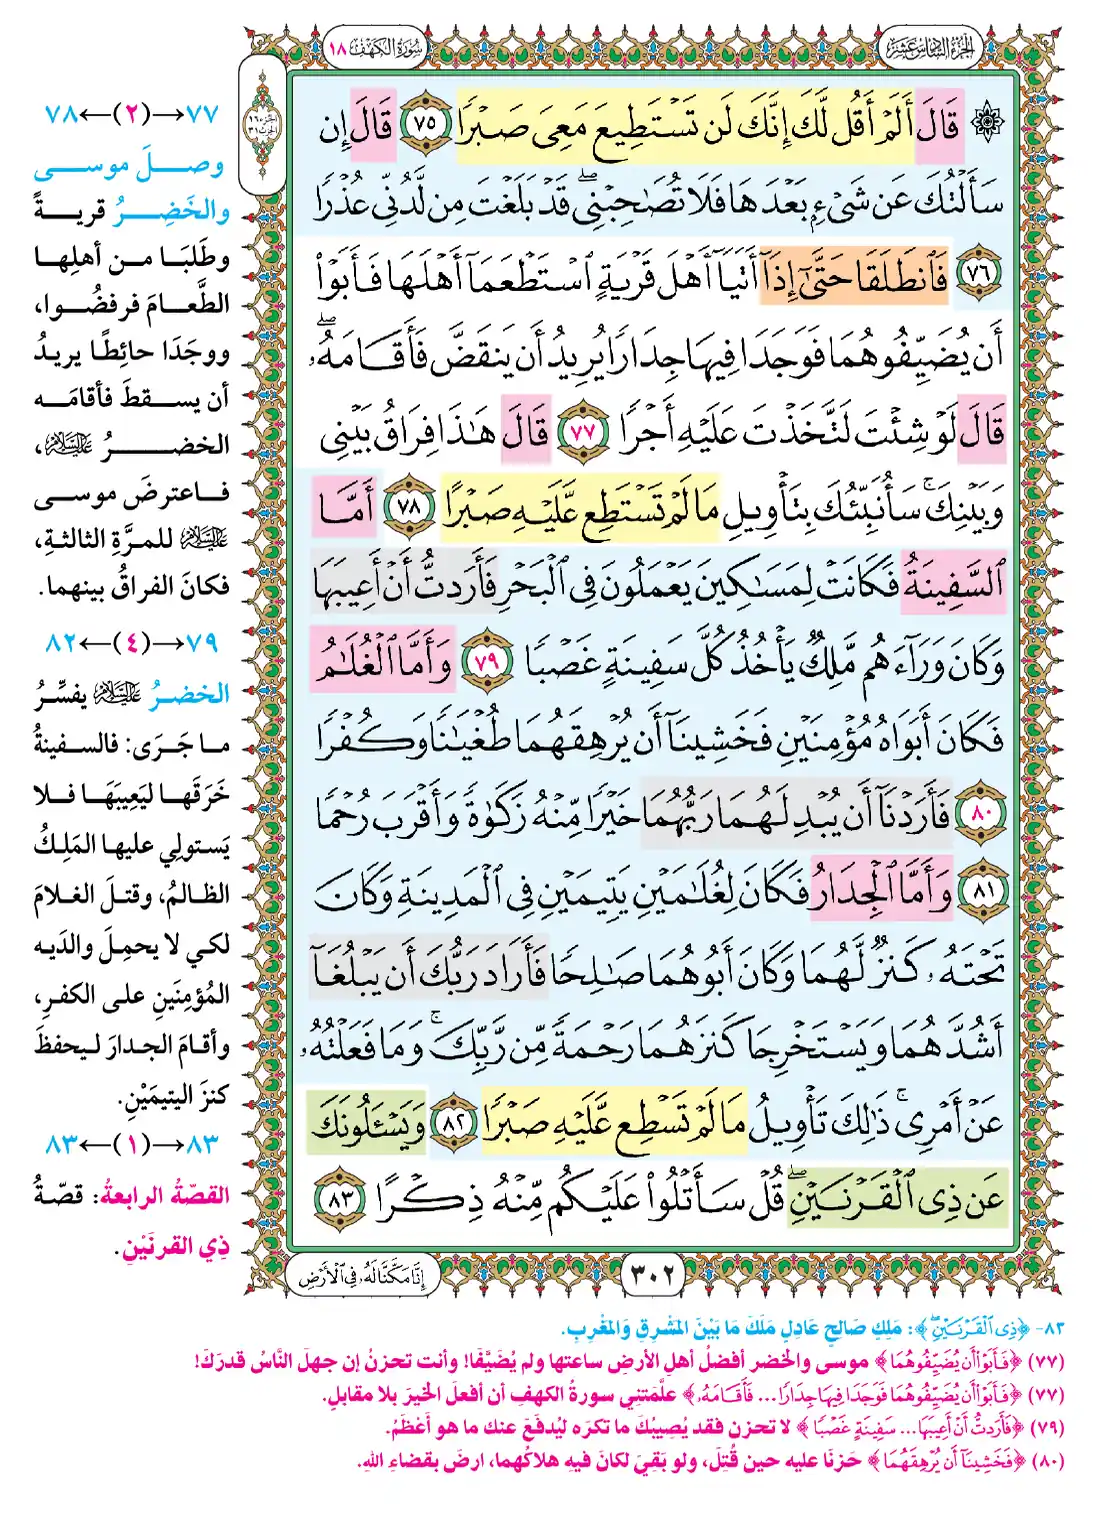 الجزء السادس عشر
سورة الكهف ١٨
۞ قَالَ أَلَمْ أَقُل لَّكَ إِنَّكَ لَن تَسْتَطِيعَ مَعِىَ صَبْرًا ٧٥ قَالَ إِن
سَأَلْتُكَ عَن شَىْءٍۭ بَعْدَهَا فَلَا تُصَٰحِبْنِى ۖ قَدْ بَلَغْتَ مِن لَّدُنِّى عُذْرًا
٧٦ فَٱنطَلَقَا حَتَّىٰٓ إِذَآ أَتَيَآ أَهْلَ قَرْيَةٍ ٱسْتَطْعَمَآ أَهْلَهَا فَأَبَوْا۟
أَن يُضَيِّفُوهُمَا فَوَجَدَا فِيهَا جِدَارًا يُرِيدُ أَن يَنقَضَّ فَأَقَامَهُۥ ۖ
قَالَ لَوْ شِئْتَ لَتَّخَذْتَ عَلَيْهِ أَجْرًا ٧٧ قَالَ هَٰذَا فِرَاقُ بَيْنِى
وَبَيْنِكَ ۚ سَأُنَبِّئُكَ بِتَأْوِيلِ مَا لَمْ تَسْتَطِع عَّلَيْهِ صَبْرًا ٧٨ أَمَّا
ٱلسَّفِينَةُ فَكَانَتْ لِمَسَٰكِينَ يَعْمَلُونَ فِى ٱلْبَحْرِ فَأَرَدتُّ أَنْ أَعِيبَهَا
وَكَانَ وَرَآءَهُم مَّلِكٌ يَأْخُذُ كُلَّ سَفِينَةٍ غَصْبًا ٧٩ وَأَمَّا ٱلْغُلَٰمُ
فَكَانَ أَبَوَاهُ مُؤْمِنَيْنِ فَخَشِينَآ أَن يُرْهِقَهُمَا طُغْيَٰنًا وَكُفْرًا
٨٠ فَأَرَدْنَآ أَن يُبْدِلَهُمَا رَبُّهُمَا خَيْرًا مِّنْهُ زَكَوٰةً وَأَقْرَبَ رُحْمًا
٨١ وَأَمَّا ٱلْجِدَارُ فَكَانَ لِغُلَٰمَيْنِ يَتِيمَيْنِ فِى ٱلْمَدِينَةِ وَكَانَ
تَحْتَهُۥ كَنزٌ لَّهُمَا وَكَانَ أَبُوهُمَا صَٰلِحًا فَأَرَادَ رَبُّكَ أَن يَبْلُغَآ
أَشُدَّهُمَا وَيَسْتَخْرِجَا كَنزَهُمَا رَحْمَةً مِّن رَّبِّكَ ۚ وَمَا فَعَلْتُهُۥ
عَنْ أَمْرِى ۚ ذَٰلِكَ تَأْوِيلُ مَا لَمْ تَسْطِع عَّلَيْهِ صَبْرًا ٨٢ وَيَسْـَٔلُونَكَ
عَن ذِى ٱلْقَرْنَيْنِ ۖ قُلْ سَأَتْلُوا۟ عَلَيْكُم مِّنْهُ ذِكْرًا ٨٣
٣٠٢
إِنَّا مَكَّنَّا لَهُۥ فِى ٱلْأَرْضِ
٧٧→(٢)←٧٨
وصلَ موسى
والخَضِرُ قريةً
وطَلَبَا من أهلِها
الطَّعامَ فرفضُوا،
ووجَدَا حائِطًا يريدُ
أن يسقطَ فأقامَه
الخضرُ عليه السلام،
فاعترضَ موسى
عليه السلام للمرَّةِ الثالثةِ،
فكانَ الفراقُ بينهما.
٧٩→(٤)←٨٢
الخضرُ عليه السلام يفسِّرُ
ما جَرَى: فالسفينةُ
خَرَقَها ليَعِيبَهَا فلا
يَستولِي عليها المَلِكُ
الظالمُ، وقتلَ الغلامَ
لكي لا يحمِلَ والدَيه
المُؤمِنَينِ على الكفرِ،
وأقامَ الجدارَ ليحفظَ
كنزَ اليتيمَيْنِ.
٨٣→(١)←٨٣
القصّةُ الرابعةُ: قصّةُ
ذِي القرنَيْنِ.
٨٣- ﴿ذِى ٱلْقَرْنَيْنِ ۖ﴾: مَلِكٍ صَالِحٍ عَادِلٍ مَلَكَ مَا بَيْنَ المَشْرِقِ وَالمَغْرِبِ.
(٧٧) ﴿فَأَبَوْا۟ أَن يُضَيِّفُوهُمَا﴾ موسى والخضر أفضلُ أهلِ الأرضِ ساعتها ولم يُضَيَّفَا! وأنت تحزنُ إن جهلَ النَّاسُ قدرَكَ!
(٧٧) ﴿فَأَبَوْا۟ أَن يُضَيِّفُوهُمَا فَوَجَدَا فِيهَا جِدَارًا... فَأَقَامَهُۥ﴾ علَّمَتنِي سورةُ الكهفِ أن أفعلَ الخيرَ بلا مقابلٍ.
(٧٩) ﴿فَأَرَدتُّ أَنْ أَعِيبَهَا... سَفِينَةٍ غَصْبًا﴾ لا تحزن فقد يُصِيبُكَ ما تكرَه ليُدفَعَ عنك ما هو أعْظَمُ.
(٨٠) ﴿فَخَشِينَآ أَن يُرْهِقَهُمَا﴾ حَزِنَا عليه حين قُتِلَ، ولو بَقِيَ لكانَ فيهِ هلاكُهما، ارضَ بقضاءِ اللهِ.